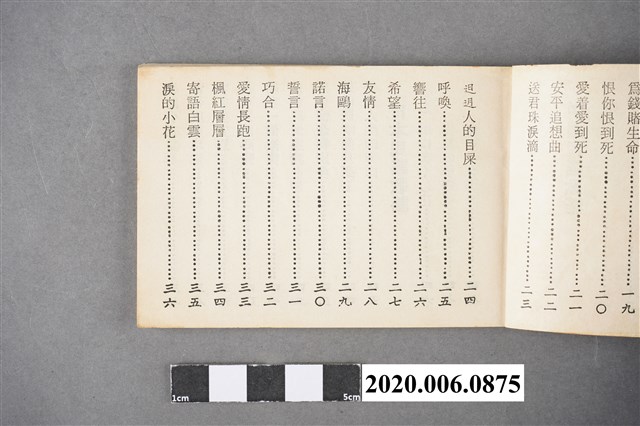 為錢賭生命⋯⋯一九
恨你恨到死⋯⋯二〇
愛着愛到死⋯⋯二一
安平追想曲⋯⋯二二
送君珠淚滴⋯⋯二三
迌迌人的目屎⋯⋯二四
呼喚⋯⋯二五
嚮往⋯⋯二六
希望⋯⋯二七
友情⋯⋯二八
海鷗⋯⋯二九
諾言⋯⋯三〇
誓言⋯⋯三一
巧合⋯⋯三二
愛情長跑⋯⋯三三
楓紅層層⋯⋯三四
寄語白雲⋯⋯三五
淚的小花⋯⋯三六
1cm 5cm
2020.006.0875